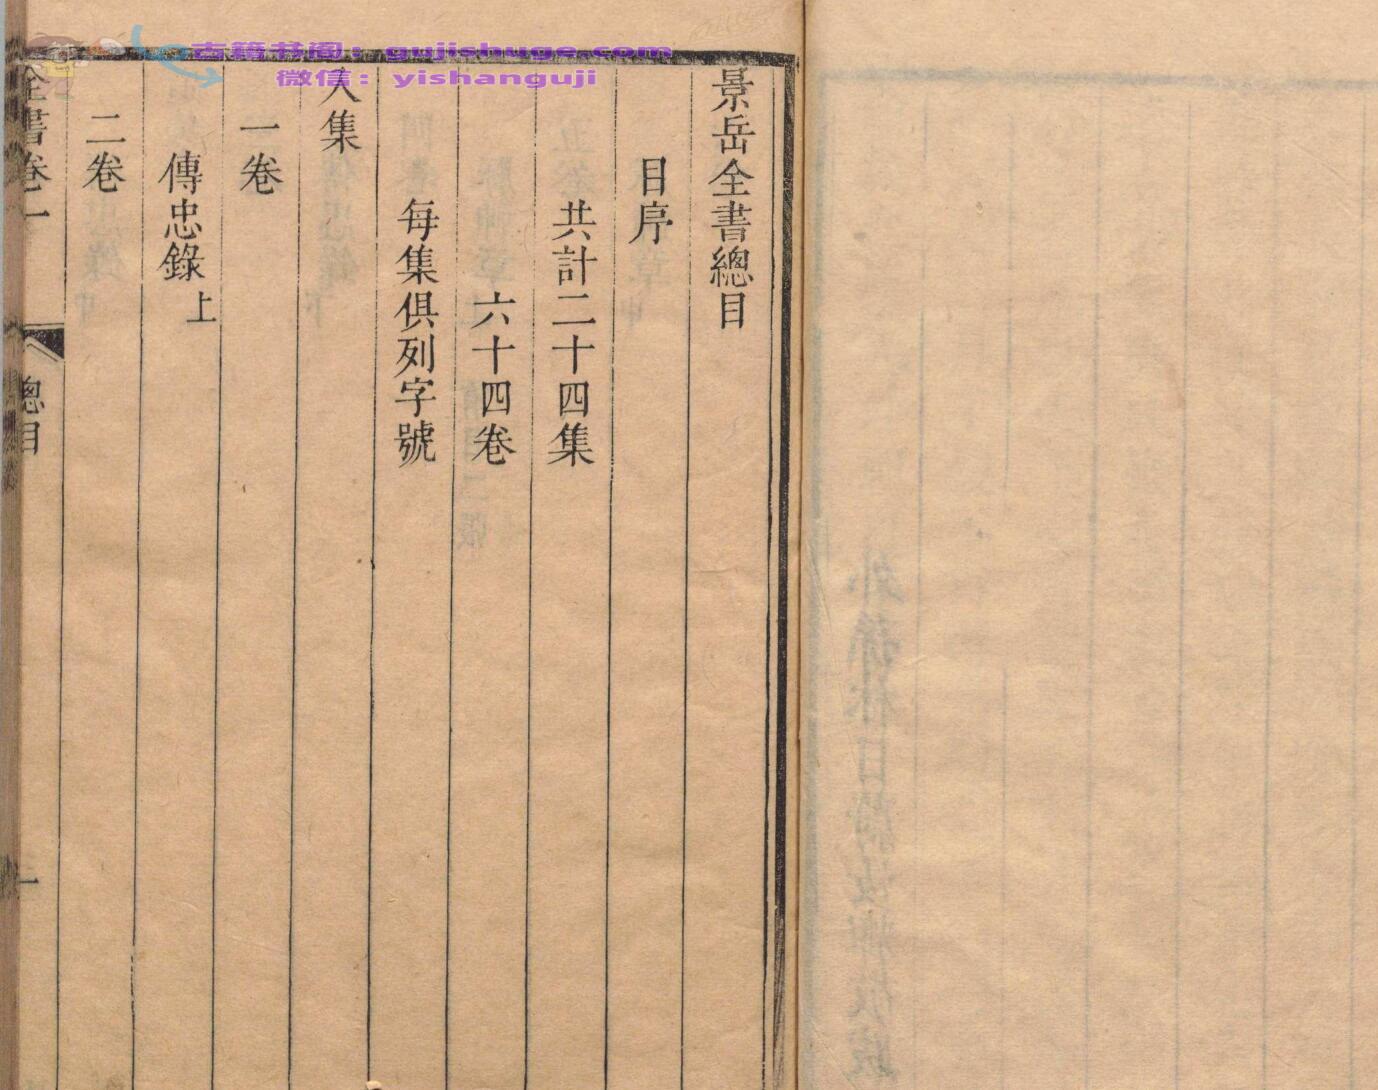 古籍书阁：gujishuge.com
微信：yishanguji
景岳全書總目
目序
共計二十四集
六十四卷
每集俱列字號
入集
一卷
傳忠錄上
二卷
全書卷一
總目
一